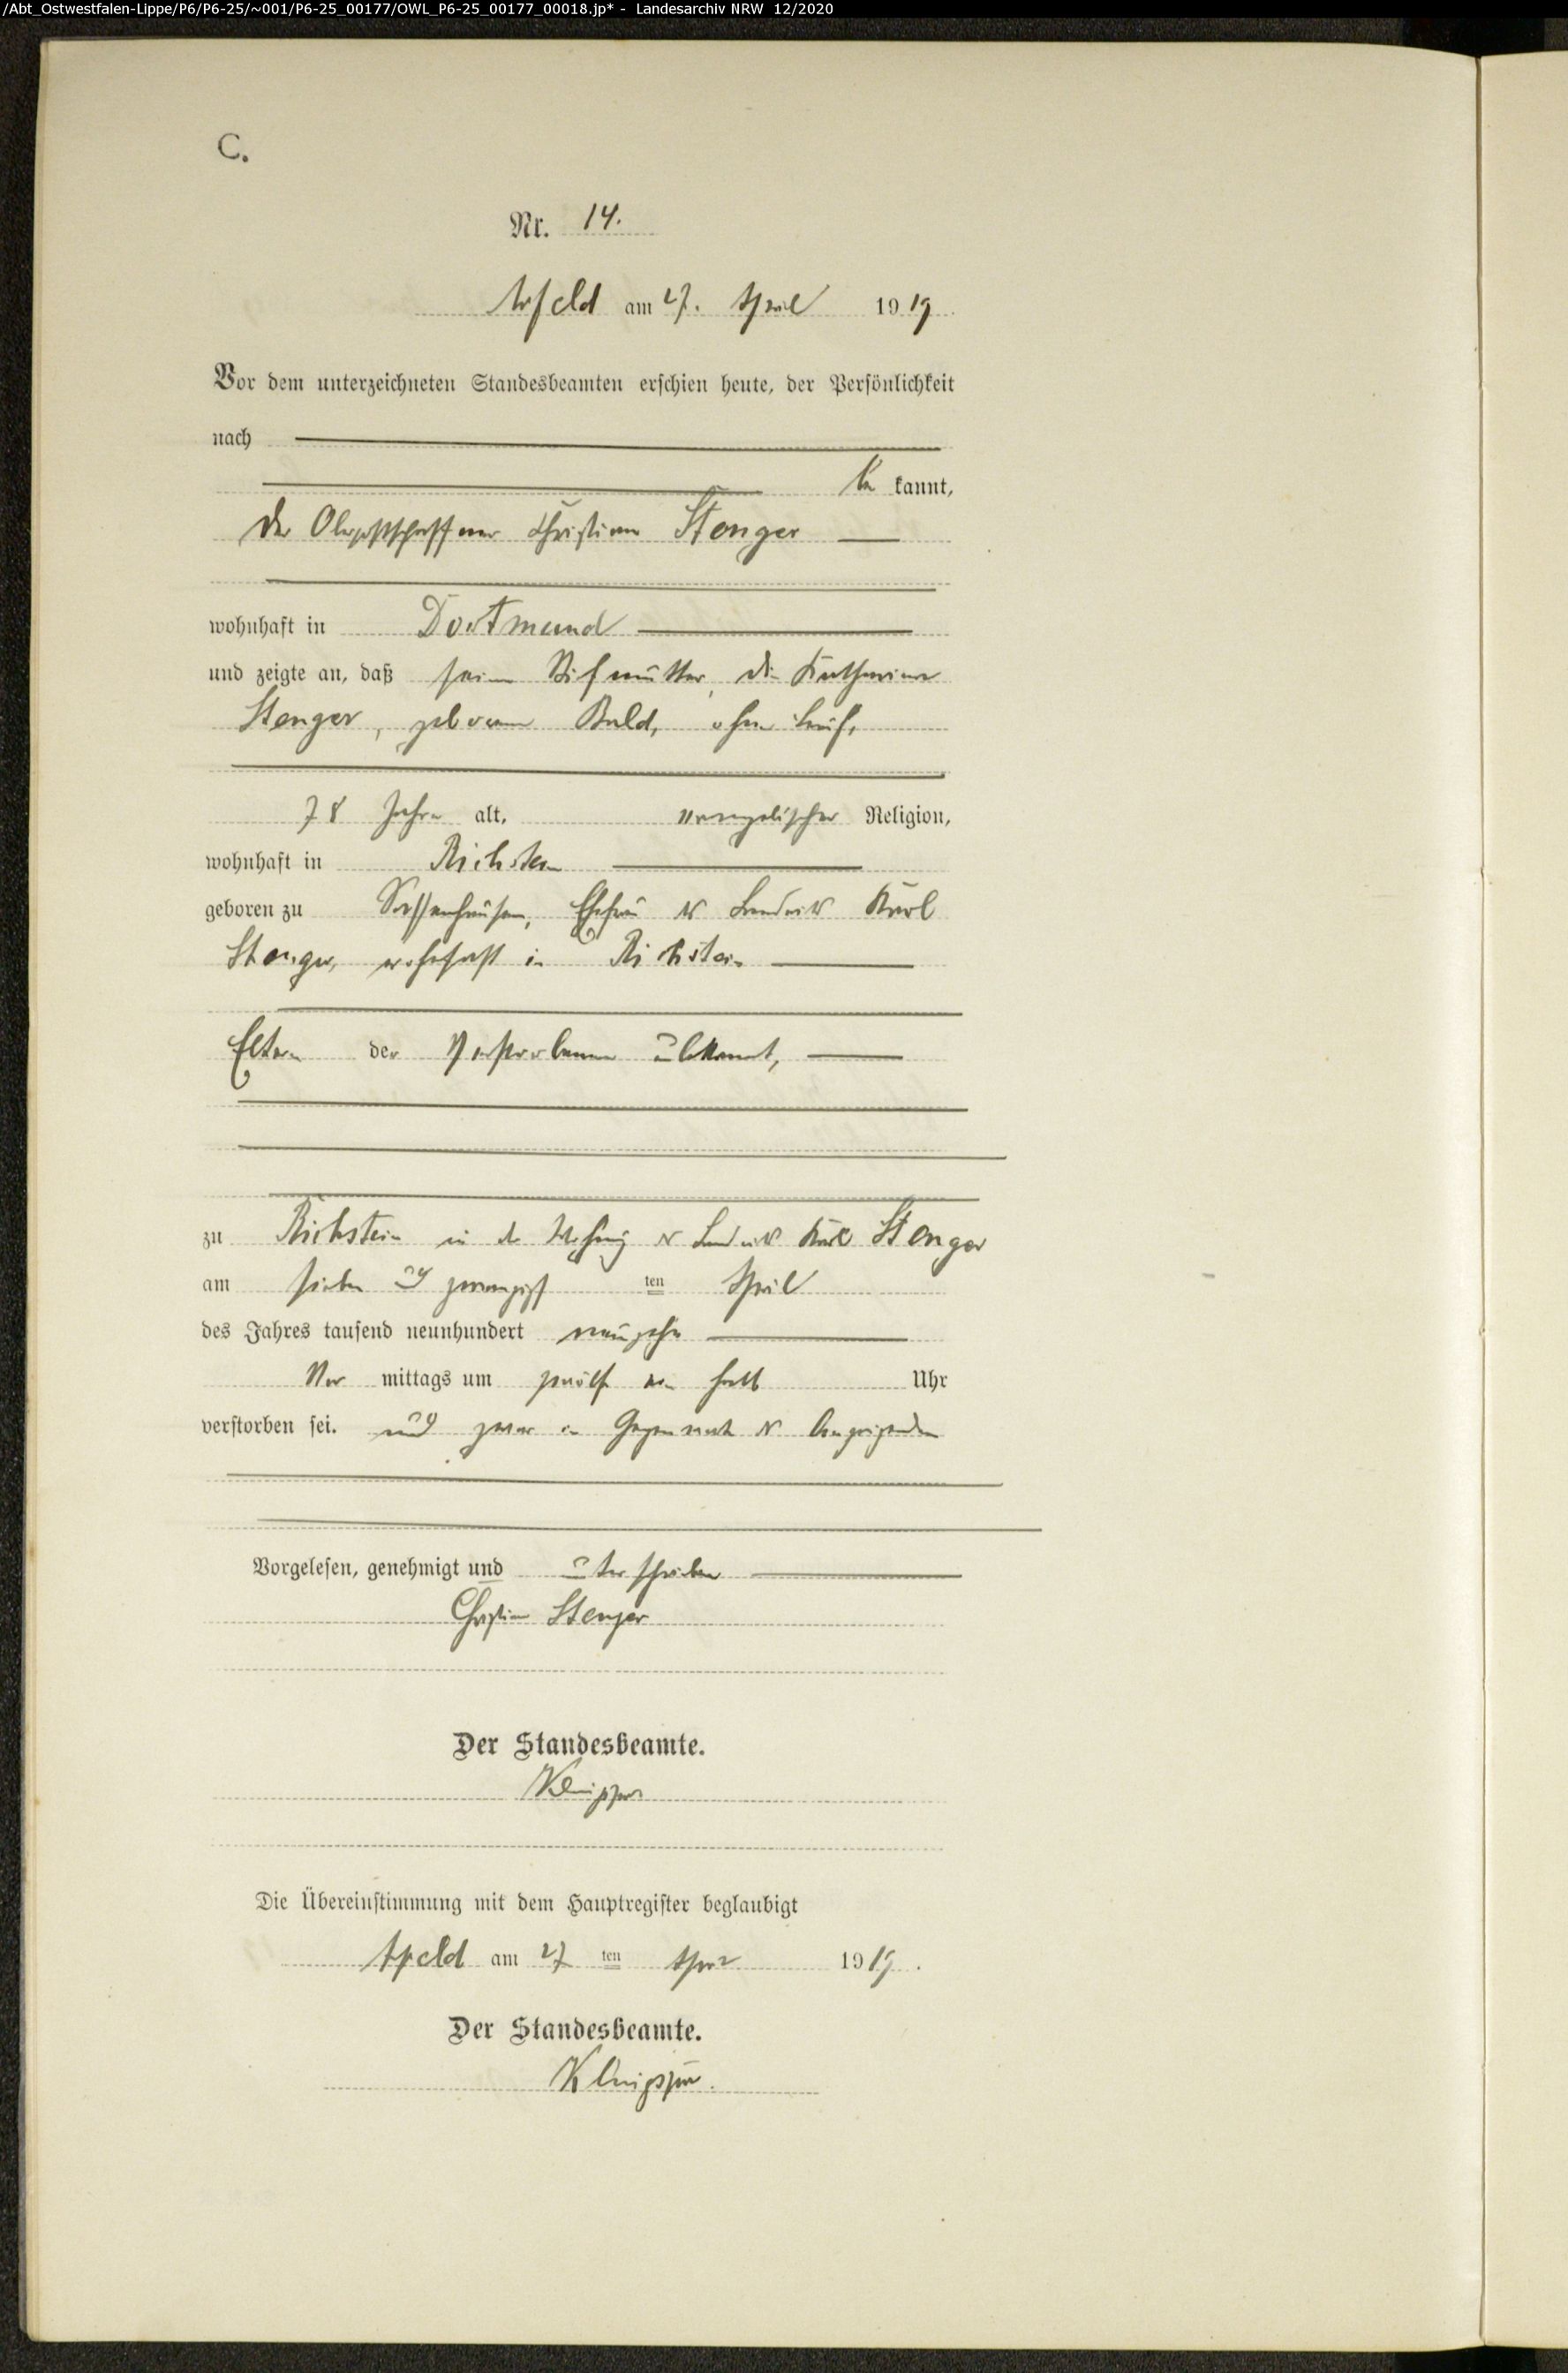 /Abt_Ostwestfalen-Lippe/P6/P6-25/~001/P6-25_00177/OWL_P6-25_00177_00018.jp* - Landesarchiv NRW 12/2020
C.
Nr. 14.
Arfeld am 27. April 1919.
Vor dem unterzeichneten Standesbeamten erschien heute, der Persönlichkeit
nach
be kannt,
der Oberpostschaffner Christian Stenger
wohnhaft in Dortmund
und zeigte an, daß seine Stiefmutter, die Katharine
Stenger, geborene Bald, ohne Beruf,
78 Jahre alt, evangelischer Religion,
wohnhaft in Richstein
geboren zu Sassenhausen, Ehefrau des Landwirts Karl
Stenger, wohnhaft in Richstein
Eltern der Verstorbenen unbekannt,
zu Richstein in der Wohnung des Landwirts Karl Stenger
am sieben und zwanzigsten April
des Jahres tausend neunhundert neunzehn
Vor mittags um zwölf ein halb Uhr
verstorben sei. und zwar in Gegenwart des Anzeigenden
Vorgelesen, genehmigt und unterschrieben
Christian Stenger
Der Standesbeamte.
Die Übereinstimmung mit dem Hauptregister beglaubigt
Arfeld am 27 ten April 1919.
Der Standesbeamte.